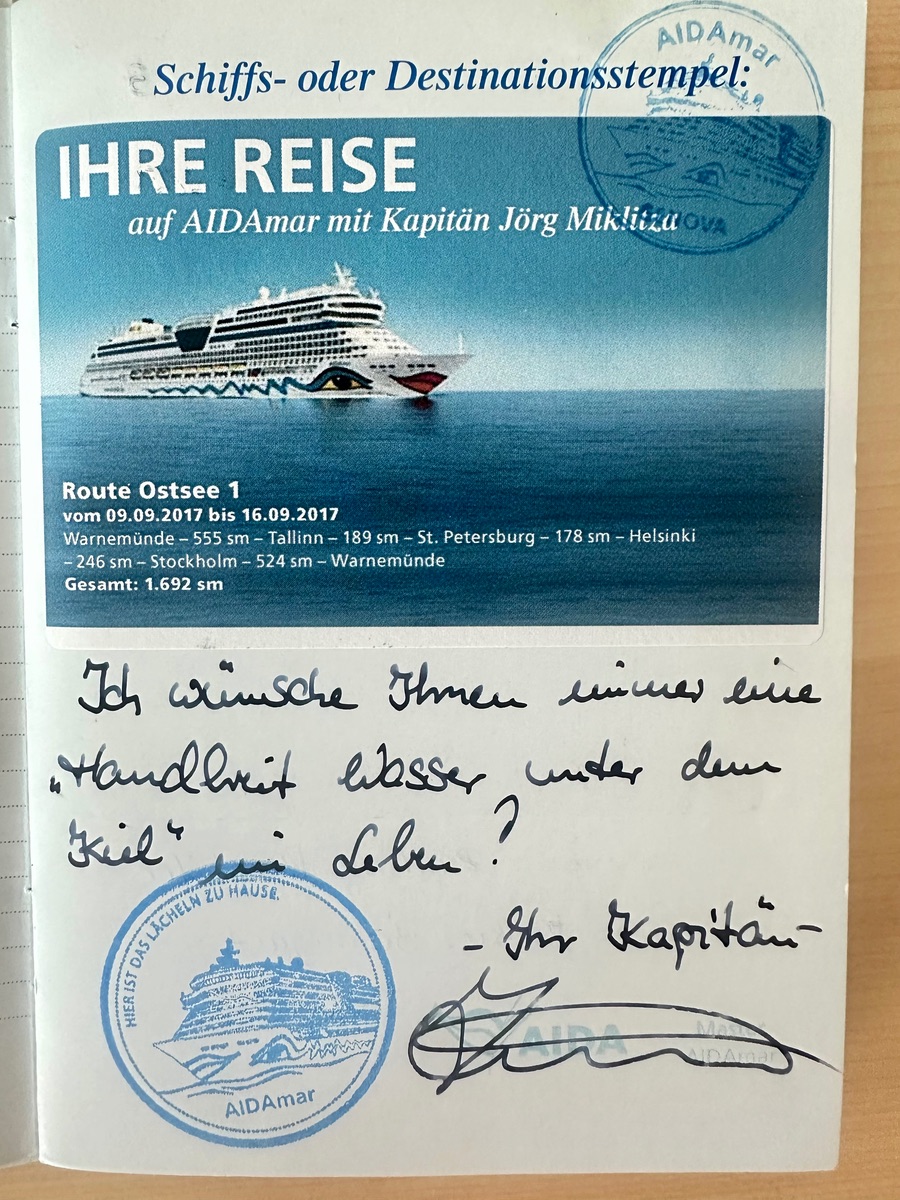 Schiffs- oder Destinationsstempel:
AIDAmar
IHRE REISE
auf AIDAmar mit Kapitän Jörg Miklitza
Route Ostsee 1
vom 09.09.2017 bis 16.09.2017
Warnemünde – 555 sm – Tallinn – 189 sm – St. Petersburg – 178 sm – Helsinki
– 246 sm – Stockholm – 524 sm – Warnemünde
Gesamt: 1.692 sm
Ich wünsche Ihnen immer eine
„Handbreit Wasser unter dem
Kiel“ im Leben!
- Ihr Kapitän -
HIER IST DAS LÄCHELN ZU HAUSE.
AIDAmar
AIDA
Master
AIDAmar